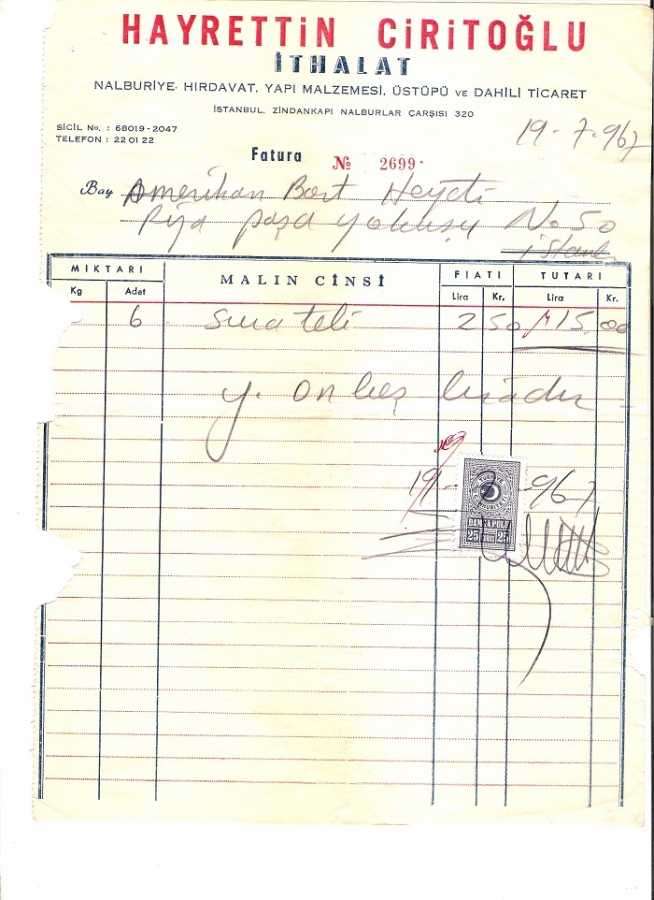 HAYRETTiN CiRiTOĞLU
İTHALAT
NALBURİYE, HIRDAVAT, YAPI MALZEMESİ, ÜSTÜPÜ VE DAHİLİ TİCARET
İSTANBUL. ZİNDANKAPI NALBURLAR ÇARŞISI 320
SİCİL No. : 68019-2047
TELEFON : 22 01 22
19-7-967
Fatura № 2699-
Bay Amerikan Bort Heyeti
Rıza paşa yokuşu No 50
MİKTARI MALIN CİNSİ FIATI TUTARI
Kg Adet Lira Kr. Lira Kr.
6 teli 250 15,00
y. on beş liradır
19- 967
TÜRKİYE
DAMGA PULU
25 25